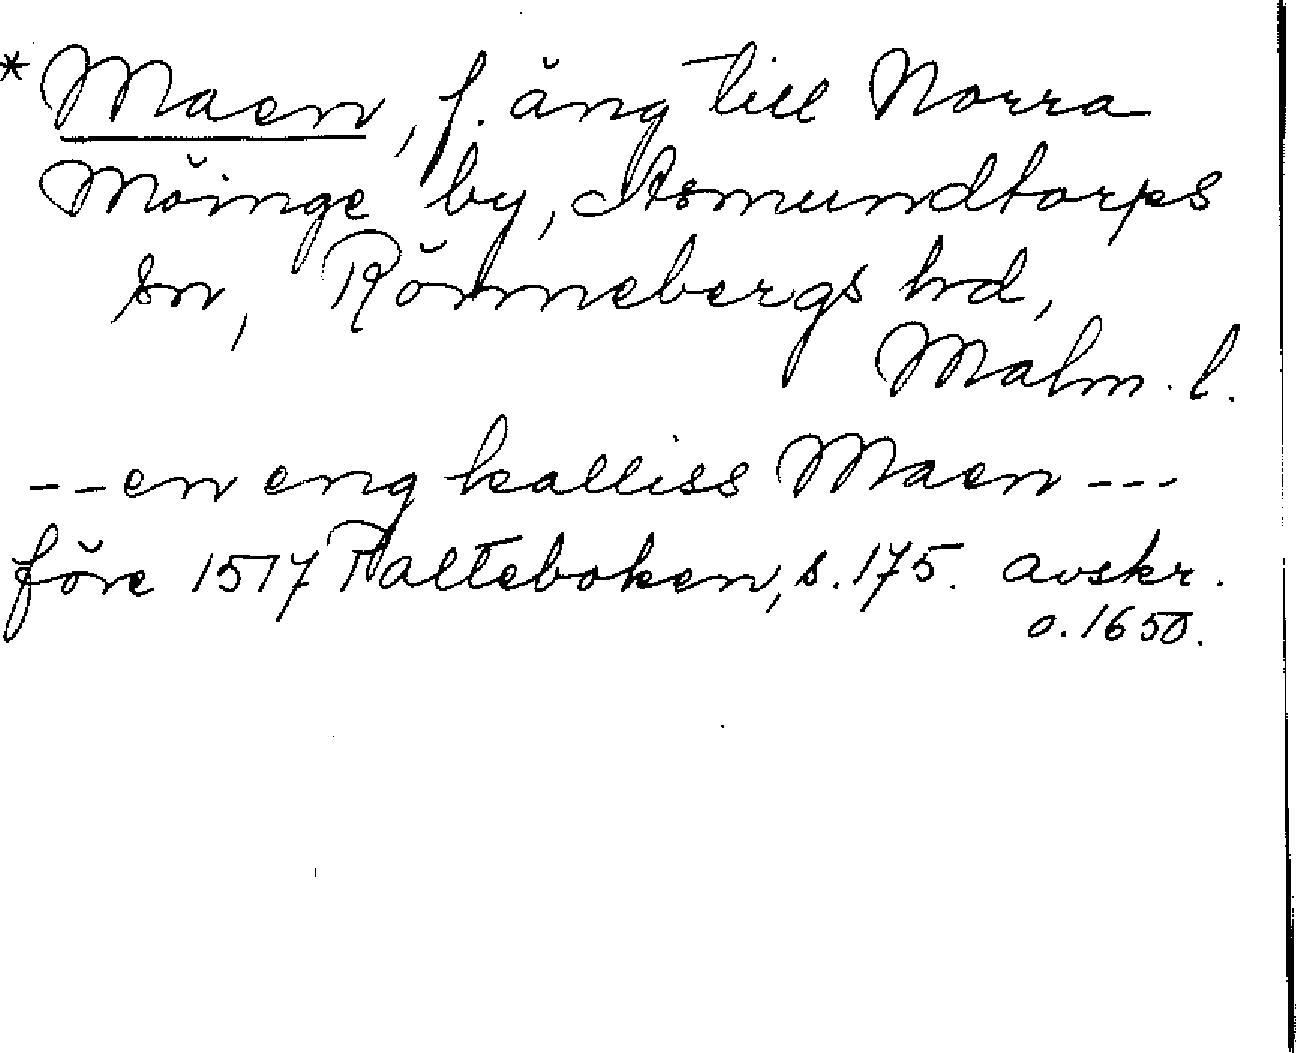 *Maen, f. äng till Norra
Möinge by, Asmundtorps
sn, Rönnebergs hd,
Malm. l.
--en eng kalliss Maen---
före 1517 Palteboken, s. 175. avskr.
o. 1650.